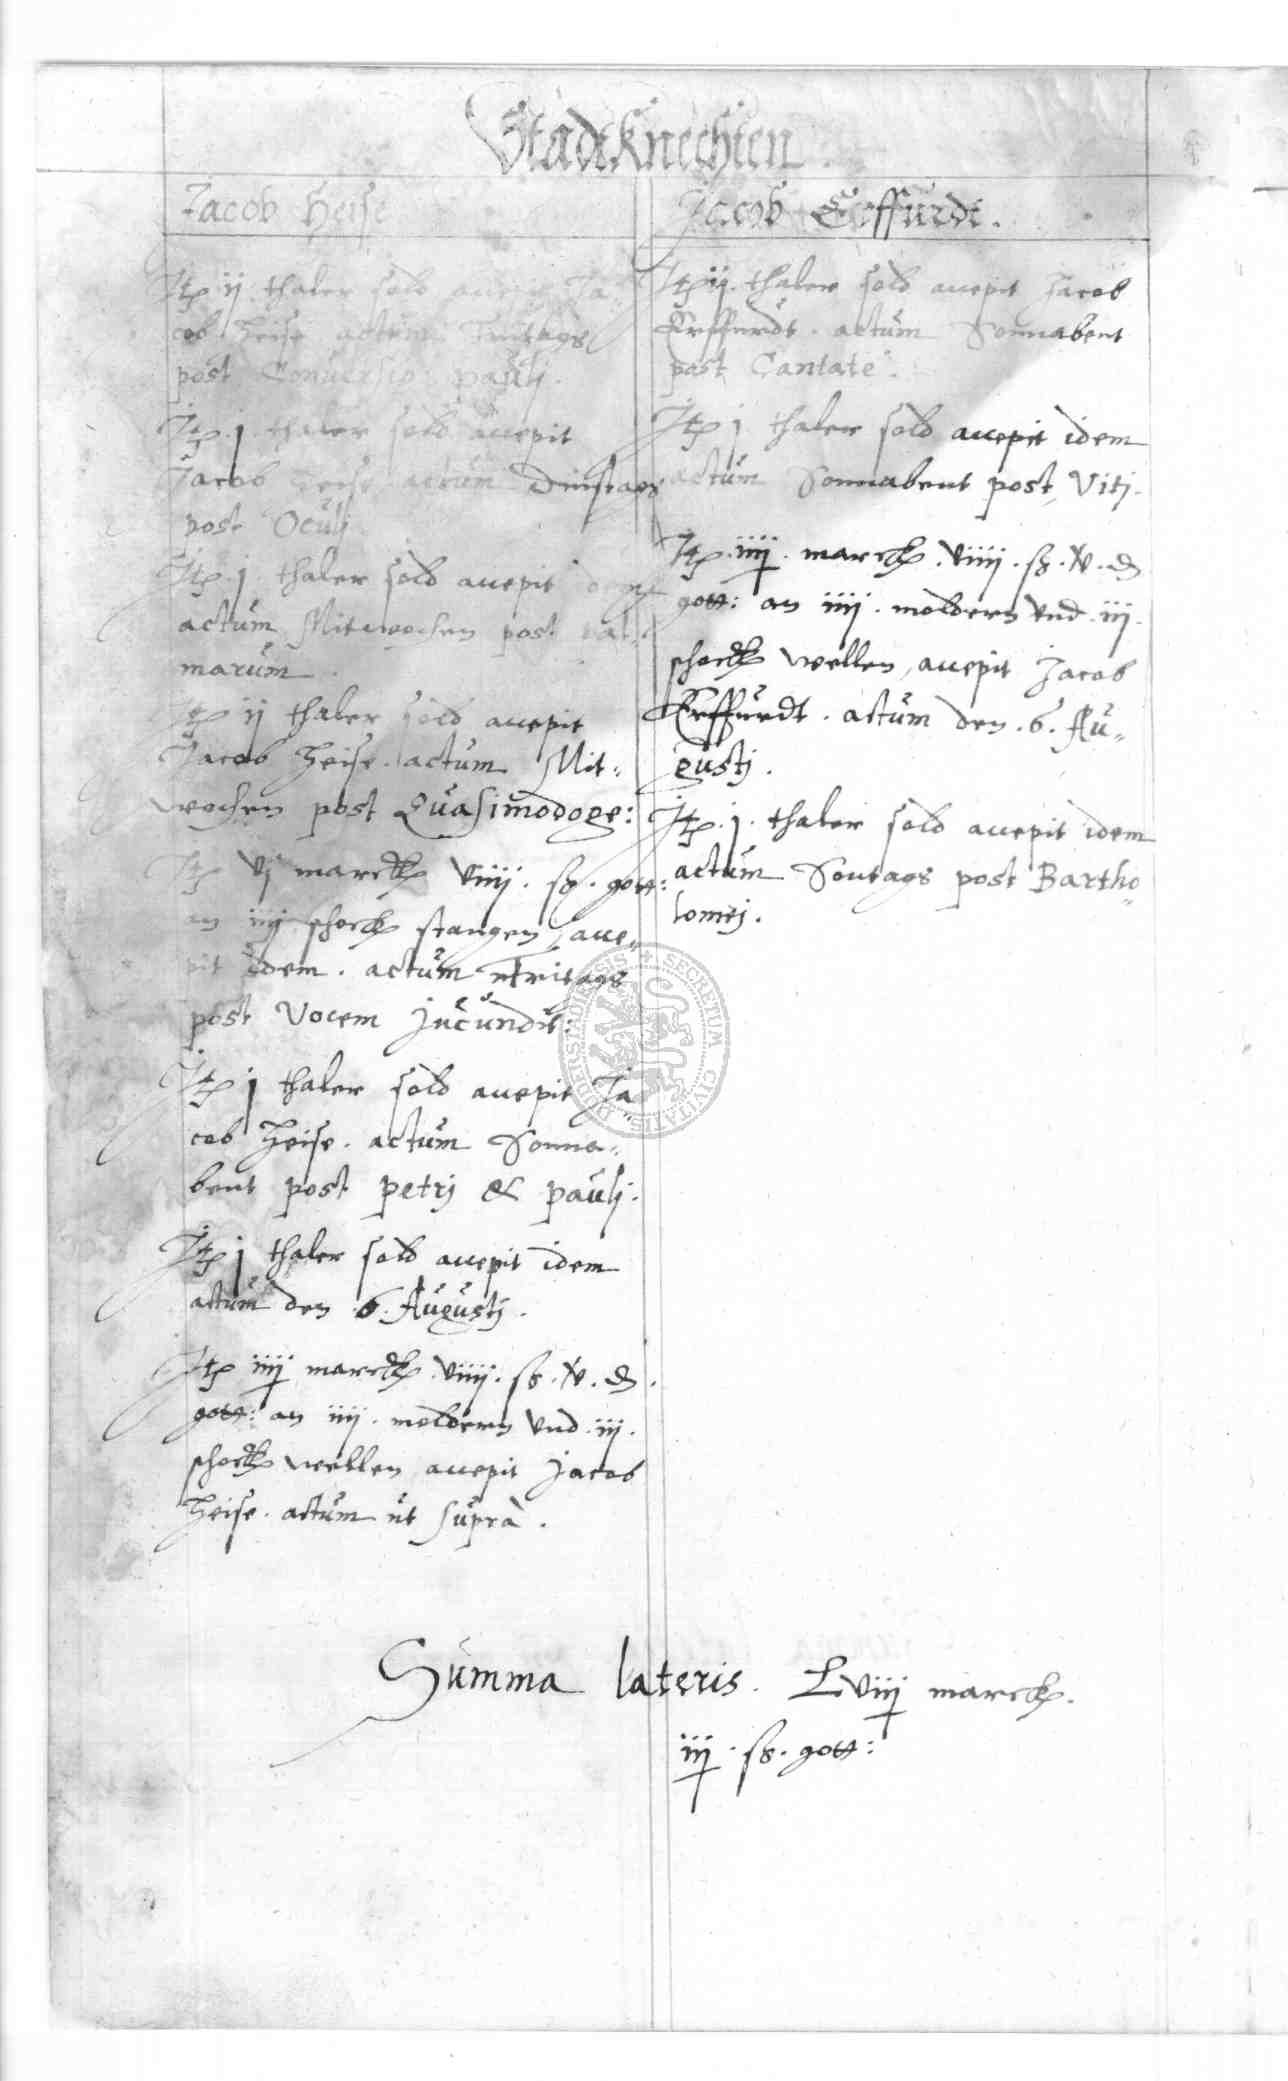 Stadtknechten
Jacob Heise
Itp ij thaler sold accepit Ja„
cob Heise actum Fritags
post Conuersio pauli.
Itp j thaler sold accepit
Jacob Heise actum Dinstags
post Oculi
Itp j thaler sold accepit idem
actum Mitwochen post pal„
marum
Itp ij thaler sold accepit
Jacob Heise actum Mit„
wochen post Quasimodoge:
Itp vj marck viiij ß gott:
an iiij schock stangen, acce„
pit idem. actum Fritags
post Vocem Jucundit:
Itp j thaler sold accepit Ja„
cob Heise. actum Sonna„
bent post petri & pauli.
Itp j thaler sold accepit idem
actum den 6. Augusti.
Itp iiij marck viiij ß v ₰
gott: an iiij moldern vnd iij
schock wellen accepit Jacob
Heise. actum ut supra.
Jacob Erffurdt.
Itp ij thaler sold accepit Jacob
Erffurdt. actum Sonnabent
post Cantate.
Itp j thaler sold accepit idem
actum Sonnabent post Viti.
Itp iiij marck viiij ß v ₰
gott: an iiij moldern vnd iij
schock wellen, accepit Jacob
Erffurdt. actum den 6. Au„
gusti.
Itp j thaler sold accepit idem
actum Sontags post Bartho„
lomei.
Summa lateris. Lviiij marck.
iij ß gott:
SECRETUM CIVITATIS DUDERSTADIENSIS